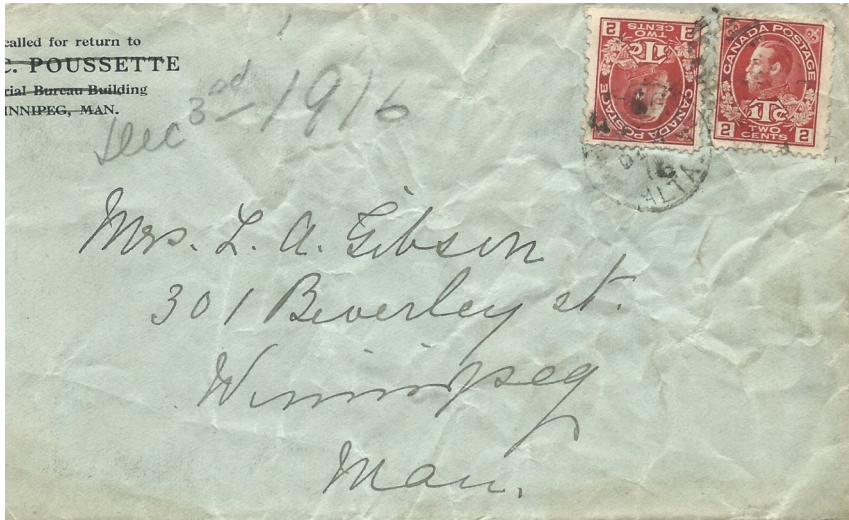 called for return to
C. POUSSETTE
rial Bureau Building
INNIPEG, MAN.
Dec 3rd 1916
CANADA POSTAGE
1TC
2 TWO CENTS 2
CANADA POSTAGE
1TC
2 TWO CENTS 2
ALTA.
Mrs. L. A. Gibson
301 Beverley st.
Winnipeg
Man.